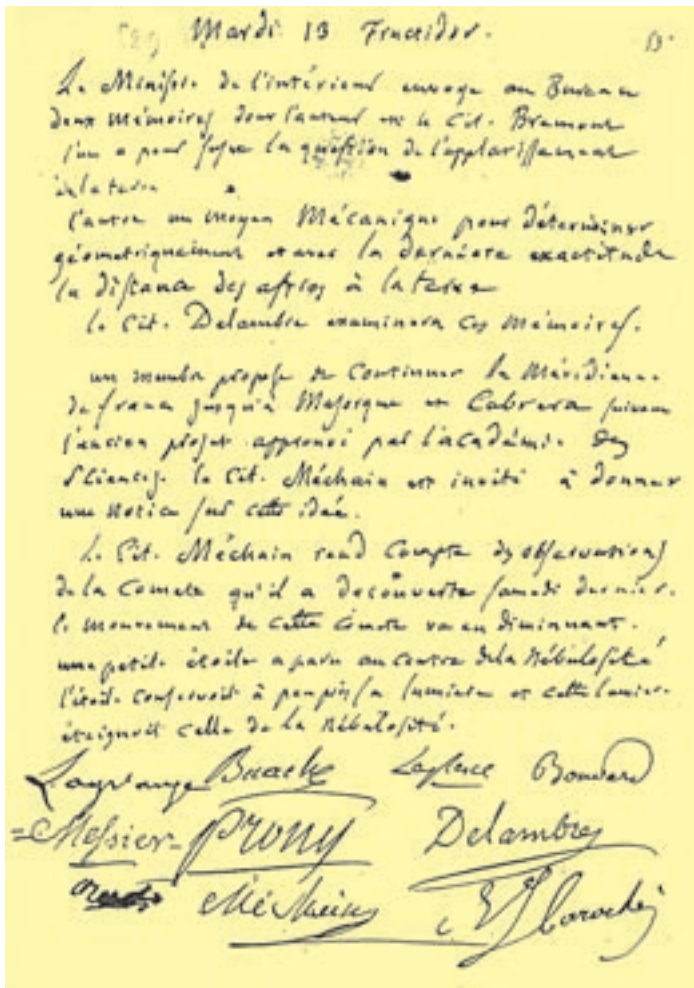 Mardi 13 Fructidor.
Le Ministre de l'intérieur envoye au Bureau
deux mémoires dont l'auteur est le Cit. Bremont
l'un a pour sujet la question de l'applatissement
de la terre
l'autre un moyen Mécanique pour déterminer
géometriquement et avec la derniere exactitude
la distance des astres à la terre
le Cit. Delambre examinera ces mémoires.
un membre propose de continuer la Méridienne
de france jusqu'à Majorque et Cabrera suivant
l'ancien projet approuvé par l'académie des
Sciences. le Cit. Méchain est invité à donner
une notice sur cette idée.
Le Cit. Méchain rend compte des observations
de la Comete qu'il a découverte samedi dernier.
le mouvement de cette Comete va en diminuant.
une petite étoile a paru au centre de la Nébulosité
l'étoile conservoit à peu près sa lumiere et cette lumiere
éteignoit celle de la Nébulosité.
Lagrange Buache Laplace Bouvard
Messier Prony Delambre
Méchain Flaroche